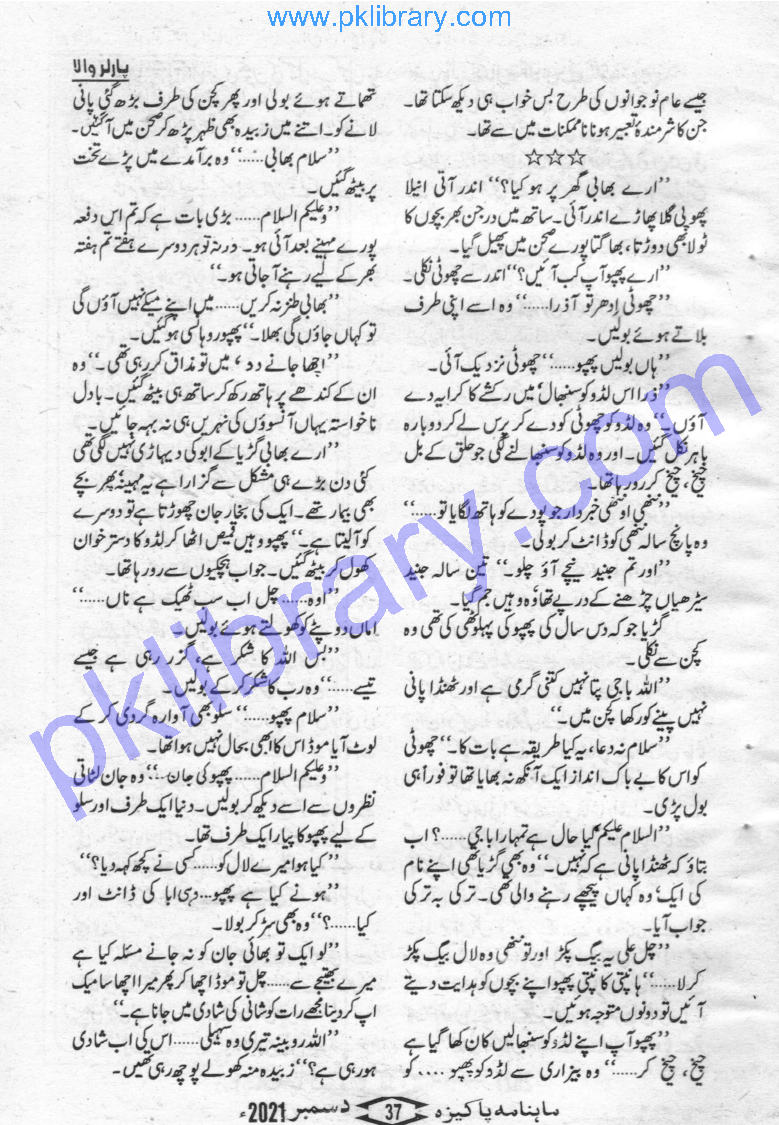 www.pklibrary.com
پارلر والا
جیسے عام نوجوانوں کی طرح بس خواب ہی دیکھ سکتا تھا۔
جن کا شرمندۂ تعبیر ہونا ناممکنات میں سے تھا۔
☆☆☆
’’ارے بھابی گھر پر ہو کیا؟‘‘ اندر آتی انیلا
پھوپی گلا پھاڑے اندر آئی۔ ساتھ میں درجن بھر بچوں کا
ٹولا بھی دوڑتا، بھاگتا پورے صحن میں پھیل گیا۔
’’ارے پھپو آپ کب آئیں؟‘‘ اندر سے چھوٹی نکلی۔
’’چھوٹی ادھر تو آ ذرا......‘‘ وہ اسے اپنی طرف
بلاتے ہوئے بولیں۔
’’ہاں بولیں پھپو......‘‘ چھوٹی نزدیک آئی۔
’’ذرا اس لڈو کو سنبھال‘ میں رکشے کا کرایہ دے
آؤں۔‘‘ وہ لڈو کو چھوٹی کو دے کر پرس لے کر دوبارہ
باہر نکل گئیں۔ اور وہ لڈو کو سنبھالنے لگی جو حلق کے بل
چیخ، چیخ کر رو رہا تھا۔
’’ننھی او ننھی خبردار جو پودے کو ہاتھ لگایا تو......‘‘
وہ پانچ سالہ ننھی کو ڈانٹ کر بولی۔
’’اور تم جنید نیچے آؤ چلو۔‘‘ تین سالہ جنید
سیڑھیاں چڑھنے کے درپے تھا‘ وہ وہیں جم گیا۔
گڑیا جو کہ دس سال کی پھپو کی پہلوٹھی کی تھی وہ
کچن سے نکلی۔
’’اللہ باجی پتا نہیں کتنی گرمی ہے اور ٹھنڈا پانی
نہیں پینے کو رکھا کچن میں۔‘‘
’’سلام نہ دعا، یہ کیا طریقہ ہے بات کا۔‘‘ چھوٹی
کو اس کا بے باک انداز ایک آنکھ نہ بھایا تھا تو فوراً ہی
بول پڑی۔
’’السلام علیکم‘ کیا حال ہے تمہارا باجی......؟ اب
بتاؤ کہ ٹھنڈا پانی ہے کہ نہیں۔‘‘ وہ بھی گڑیا تھی اپنے نام
کی ایک‘ وہ کہاں پیچھے رہنے والی تھی۔ ترکی بہ ترکی
جواب آیا۔
’’چل علی یہ بیگ پکڑ اور تو ننھی وہ لال بیگ پکڑ
کر لا......‘‘ ہانپتی کانپتی پھپو اپنے بچوں کو ہدایت دیتے
آئیں تو دونوں متوجہ ہوئیں۔
’’پھپو آپ اپنے لڈو کو سنبھالیں کان کھا گیا ہے
چیخ، چیخ کر......‘‘ وہ بیزاری سے لڈو کو پھپو .... کو
تھماتے ہوئے بولی اور پھر کچن کی طرف بڑھ گئی پانی
لانے کو۔ اتنے میں زبیدہ بھی ظہر پڑھ کر صحن میں آگئیں۔
’’سلام بھابی......‘‘ وہ برآمدے میں پڑے تخت
پر بیٹھ گئیں۔
’’وعلیکم السلام...... بڑی بات ہے کہ تم اس دفعہ
پورے مہینے بعد آئی ہو۔ ورنہ تو ہر دوسرے ہفتے تم ہفتہ
بھر کے لیے رہنے آجاتی ہو۔‘‘
’’بھابی طنز نہ کریں...... میں اپنے میکے نہیں آؤں گی
تو کہاں جاؤں گی بھلا۔‘‘ پھپو روہانسی ہو گئیں۔
’’اچھا جانے دو‘ میں تو مذاق کر رہی تھی۔‘‘ وہ
ان کے کندھے پر ہاتھ رکھ کر ساتھ ہی بیٹھ گئیں۔ بادل
ناخواستہ یہاں آنسوؤں کی نہریں ہی نہ بہہ جائیں۔
’’ارے بھابی گڑیا کے ابو کی دیہاڑی نہیں لگی تھی
کئی دن بڑے ہی مشکل سے گزارا ہے یہ مہینہ‘ پھر بچے
بھی بیمار تھے۔ ایک کی بخار جان چھوڑتا ہے تو دوسرے
کو آلیتا ہے۔‘‘ پھپو وہیں قمیص اٹھا کر لڈو کا دسترخوان
کھول کر بیٹھ گئیں۔ جو اب ہچکیوں سے رو رہا تھا۔
’’اوہ...... چل اب سب ٹھیک ہے ناں......‘‘
اماں دوپٹے کو کھولتے ہوئے بولیں۔
’’بس اللہ کا شکر ہے، گزر رہی ہے جیسے
تیسے......‘‘ وہ رب کا شکر کر کے بولیں۔
’’سلام پھپو......‘‘ سلو بھی آوارہ گردی کر کے
لوٹ آیا موڈ اس کا ابھی بحال نہیں ہوا تھا۔
’’وعلیکم السلام...... پھپو کی جان...‘‘ وہ جان لٹاتی
نظروں سے اسے دیکھ کر بولیں۔ دنیا ایک طرف اور سلو
کے لیے پھپو کا پیار ایک طرف تھا۔
’’کیا ہوا میرے لال کو...... کسی نے کچھ کہہ دیا؟‘‘
’’ہونے کیا ہے پھپو... وہی ابا کی ڈانٹ اور
کیا......؟‘‘ وہ بھی سڑ کر بولا۔
’’لو ایک تو بھائی جان کو نہ جانے مسئلہ کیا ہے
میرے بھتیجے سے...... چل تو موڈ اچھا کر پھر میرا اچھا سا میک
اپ کر دینا مجھے رات کو شانی کی شادی میں جانا ہے۔‘‘
’’اللہ روبینہ تیری وہ سہیلی...... اس کی اب شادی
ہو رہی ہے؟‘‘ زبیدہ منہ کھولے پوچھ رہی تھیں۔
ماہنامہ پاکیزہ 37 دسمبر 2021ء
pklibrary.com